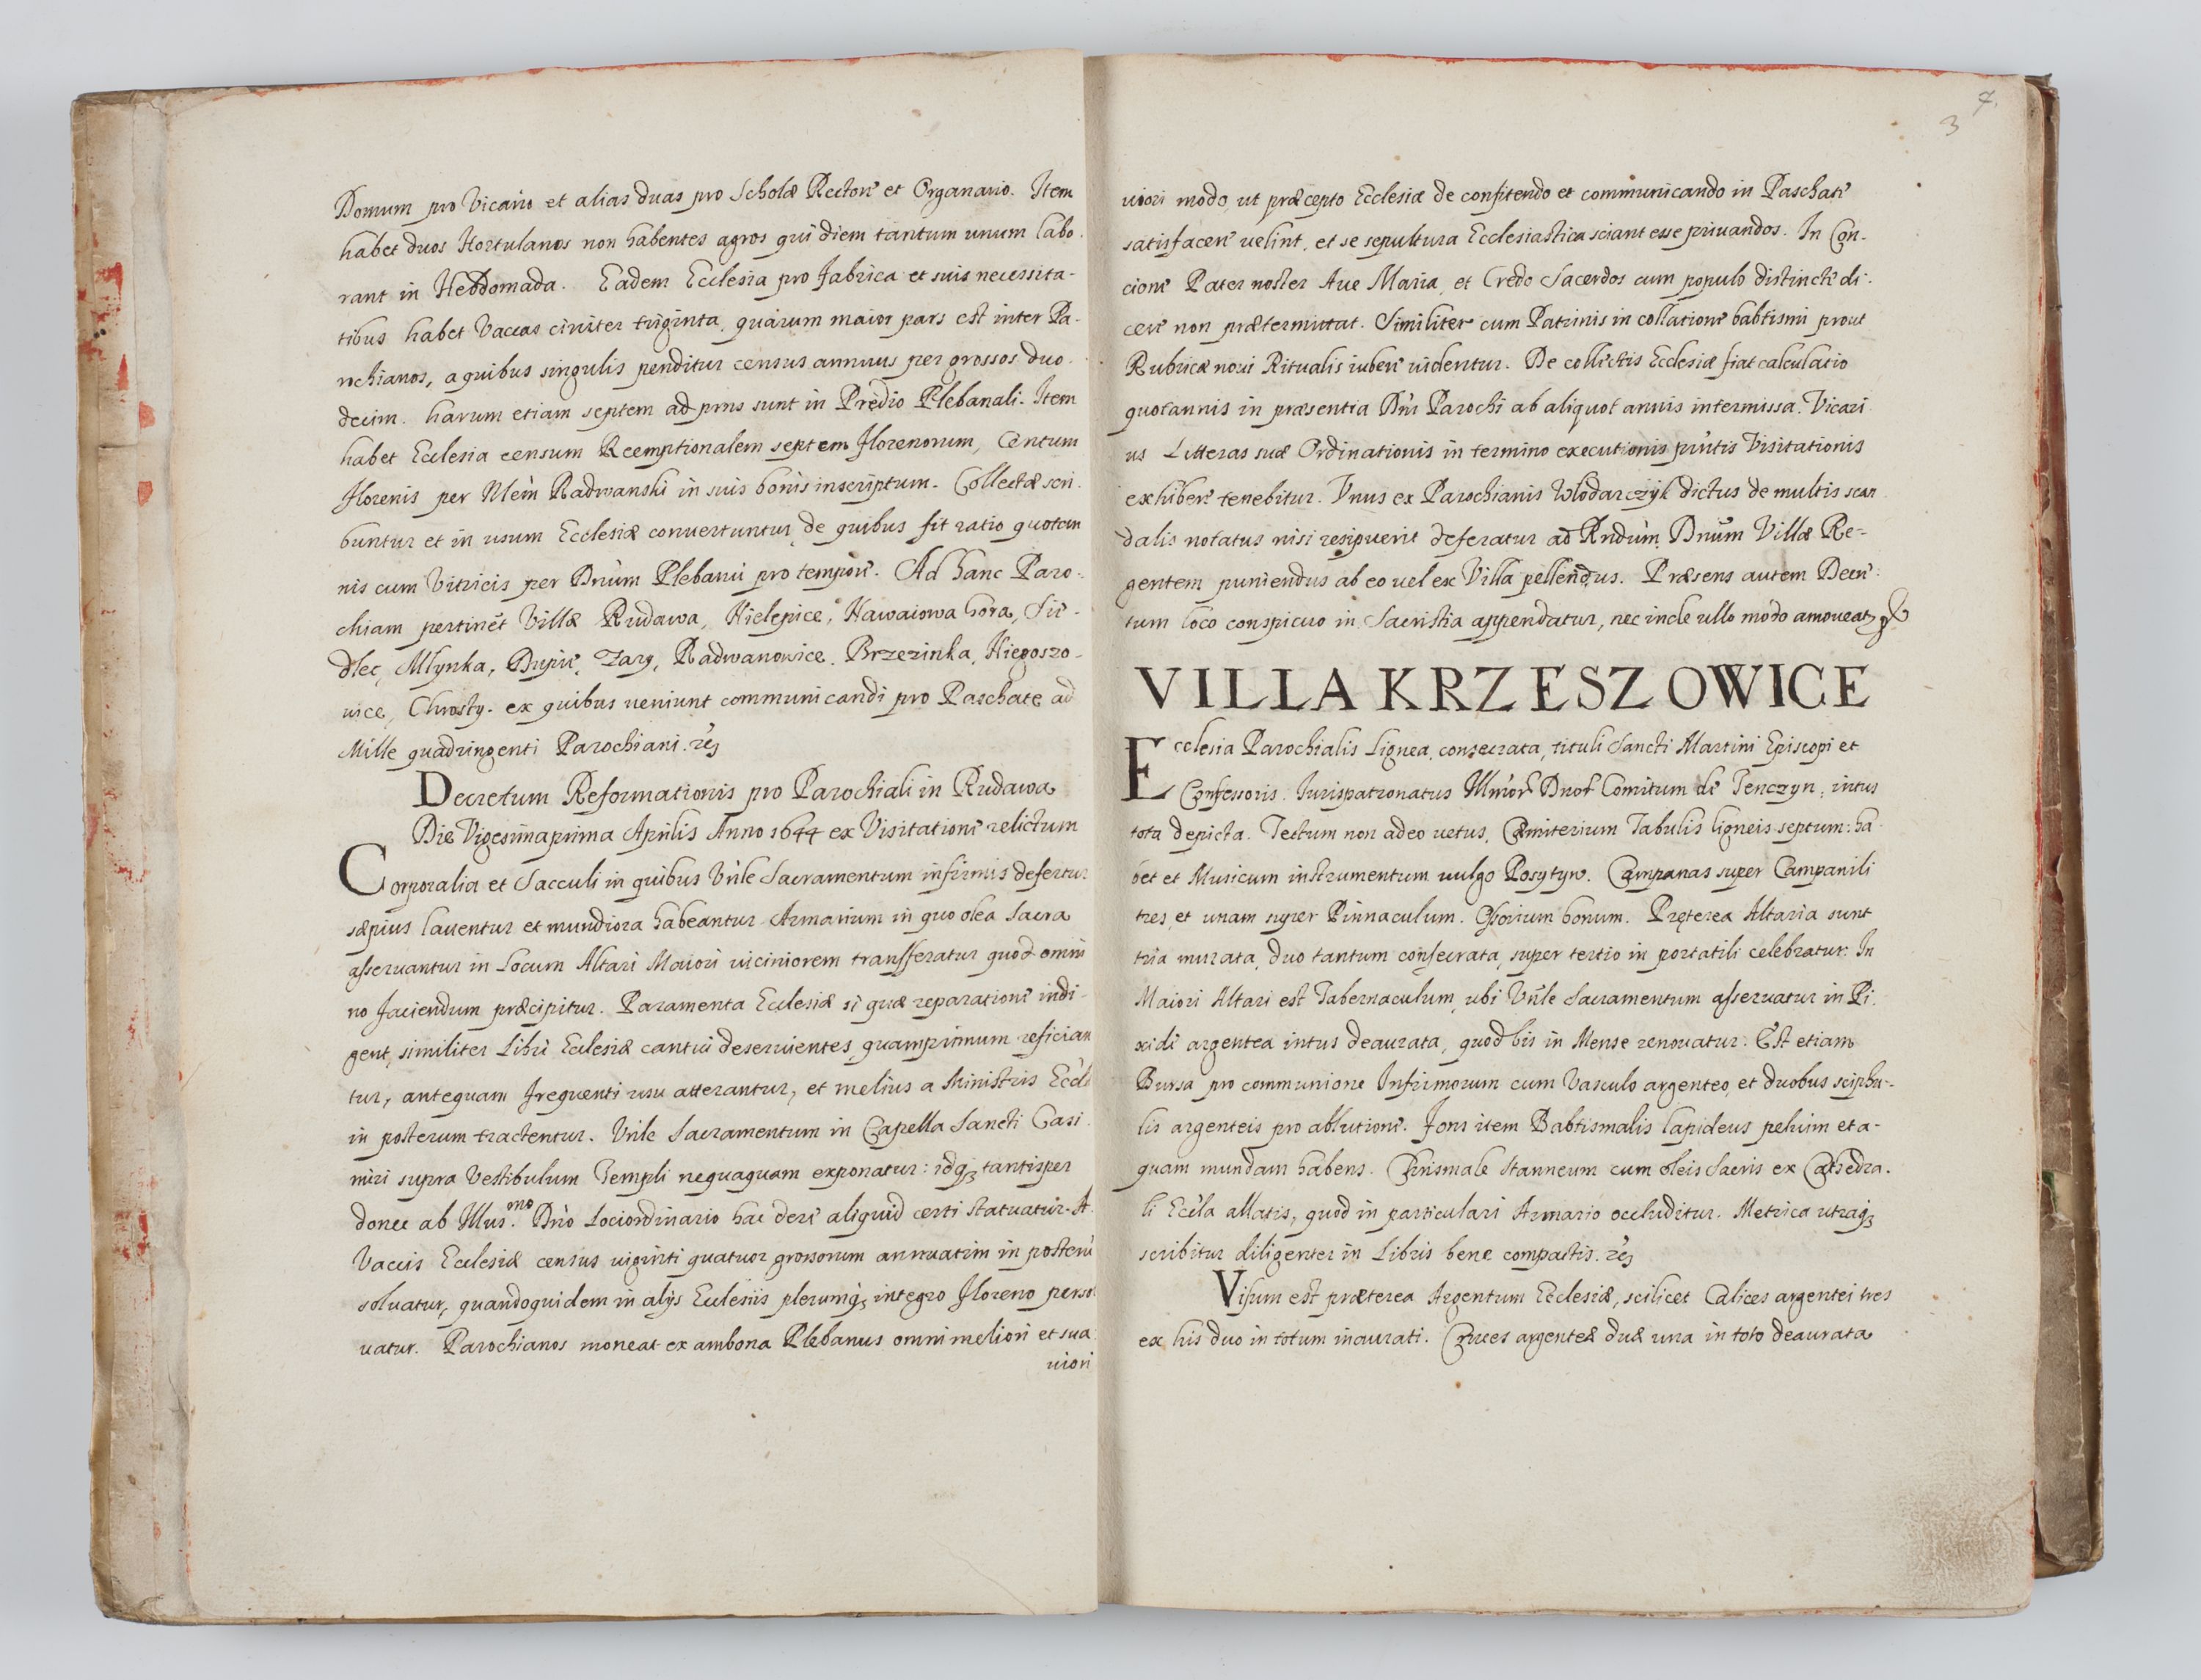 Domum pro Vicario et alias duas pro Scholæ Rectore et Organario. Item
habet duos Hortulanos non habentes agros qui diem tantum unum labo-
rant in Hebdomada. Eadem Ecclesia pro fabrica et suis necessita-
tibus habet Vaccas circiter triginta, quarum maior pars est inter Pa-
rochianos, a quibus singulis penditur census annuus per grossos duo-
decim. harum etiam septem ad prns sunt in Prędio Plebanali. Item
habet Ecclesia censum Reemptionalem septem florenorum, Centum
florenis per Mcum Radwanski in suis bonis inscriptum. Collectæ scri-
buntur et in usum Ecclesiæ convertuntur, de quibus fit ratio quotan
nis cum Vitricis per Dnum Plebanū pro tempore. Ad hanc Paro-
chiam pertinēt Villæ Rudawa, Nielepice, Nawaiowa Gora, Sie-
dlec, Mlynka, Dupie, Zary, Radwanowice, Brzezinka, Niegoszo-
wice, Chrosty. ex quibus ueniunt communicandi pro Paschate ad
Mille quadringenti Parochiani.
Decretum Reformationis pro Parochiali in Rudawa
Die Vigesimaprima Aprilis Anno 1644 ex Visitatione relictum
Corporalia et Sacculi in quibus Vnle Sacramentum infirmis defertur
sæpius lauentur et mundiora habeantur Armarium in quo olea Sacra
asseruantur in Locum Altari Maiori uiciniorem transferatur quod omni
no faciendum præcipitur. Paramenta Ecclesiæ si quæ reparatione indi-
gent, similiter Libri Ecclesiæ cantui deseruientes, quamprimum refician
tur, antequam frequenti usu atterantur, et melius a Ministris Eccle
in posterum tractentur. Vnle Sacramentum in Capella Sancti Casi-
miri supra Vestibulum Templi nequaquam exponatur: idqȝ tantisper
donec ab Illus.mo Dno Lociordinario hac de re aliquid certi statuatur. A
Vaccis Ecclesiæ census uiginti quatuor grossorum annuatim in posterū
soluatur, quandoquidem in alijs Ecclesiis plerumqȝ integro floreno persol
uatur. Parochianos moneat ex ambona Plebanus omni meliori et sua
uiori
3 7.
uiori modo, ut præcepto Ecclesiæ de confitendo et communicando in Paschate
satisfacere uelint, et se sepultura Ecclesiastica sciant esse priuandos. In Con-
cione Pater noster Aue Maria, et Credo Sacerdos cum populo distincte di-
cere non prætermittat. Similiter cum Patrinis in collatione babtismi prout
Rubricæ noui Ritualis iubere uidentur. De collectis Ecclesiæ fiat calculatio
quotannis in præsentia Dni Parochi ab aliquot annis intermissa. Vicari
us Litteras suæ Ordinationis in termino executionis pntis Visitationis
exhibere tenebitur. Vnus ex Parochianis Wlodarczyk dictus de multis scan
dalis notatus nisi resipuerit deferatur ad Rndum Dnum Villæ Re-
gentem puniendus ab eo uel ex Villa pellendus. Præsens autem Decre-
tum loco conspicuo in Sacristia appendatur, nec inde ullo modo amoueat
VILLA KRZESZOWICE
Ecclesia Parochialis Lignea, consecrata, tituli Sancti Martini Episcopi et
Confessoris. Iurispatronatus Illmor Dnor Comitum de Tenczyn, intus
tota depicta. Tectum non adeo uetus, Cæmiterium Tabulis ligneis septum: ha
bet et Musicum instrumentum uulgo Posytyw. Campanas super Campanili
tres, et unam super Pinnaculum. Ossorium bonum. Pręterea Altaria sunt
tria murata, duo tantum consecrata, super tertio in portatili celebratur. In
Maiori Altari est Tabernaculum, ubi Vnle Sacramentum asseruatur in Pi-
xide argentea intus deaurata, quod bis in Mense renouatur. Est etiam
Bursa pro communione Infirmorum cum Vasculo argenteo, et duobus sciphu-
lis argenteis pro ablutione. Fons item Babtismalis lapideus peluim et a-
quam mundam habens. Chrismale stanneum cum oleis Sacris ex Cathedra-
li Eccla allatis, quod in particulari Armario occluditur. Metrica utraqȝ
scribitur diligenter in Libris bene compactis.
Visum est præterea Argentum Ecclesiæ, scilicet Calices argentei tres
ex his duo in totum inaurati. Cruces argenteæ duæ una in toto deaurata